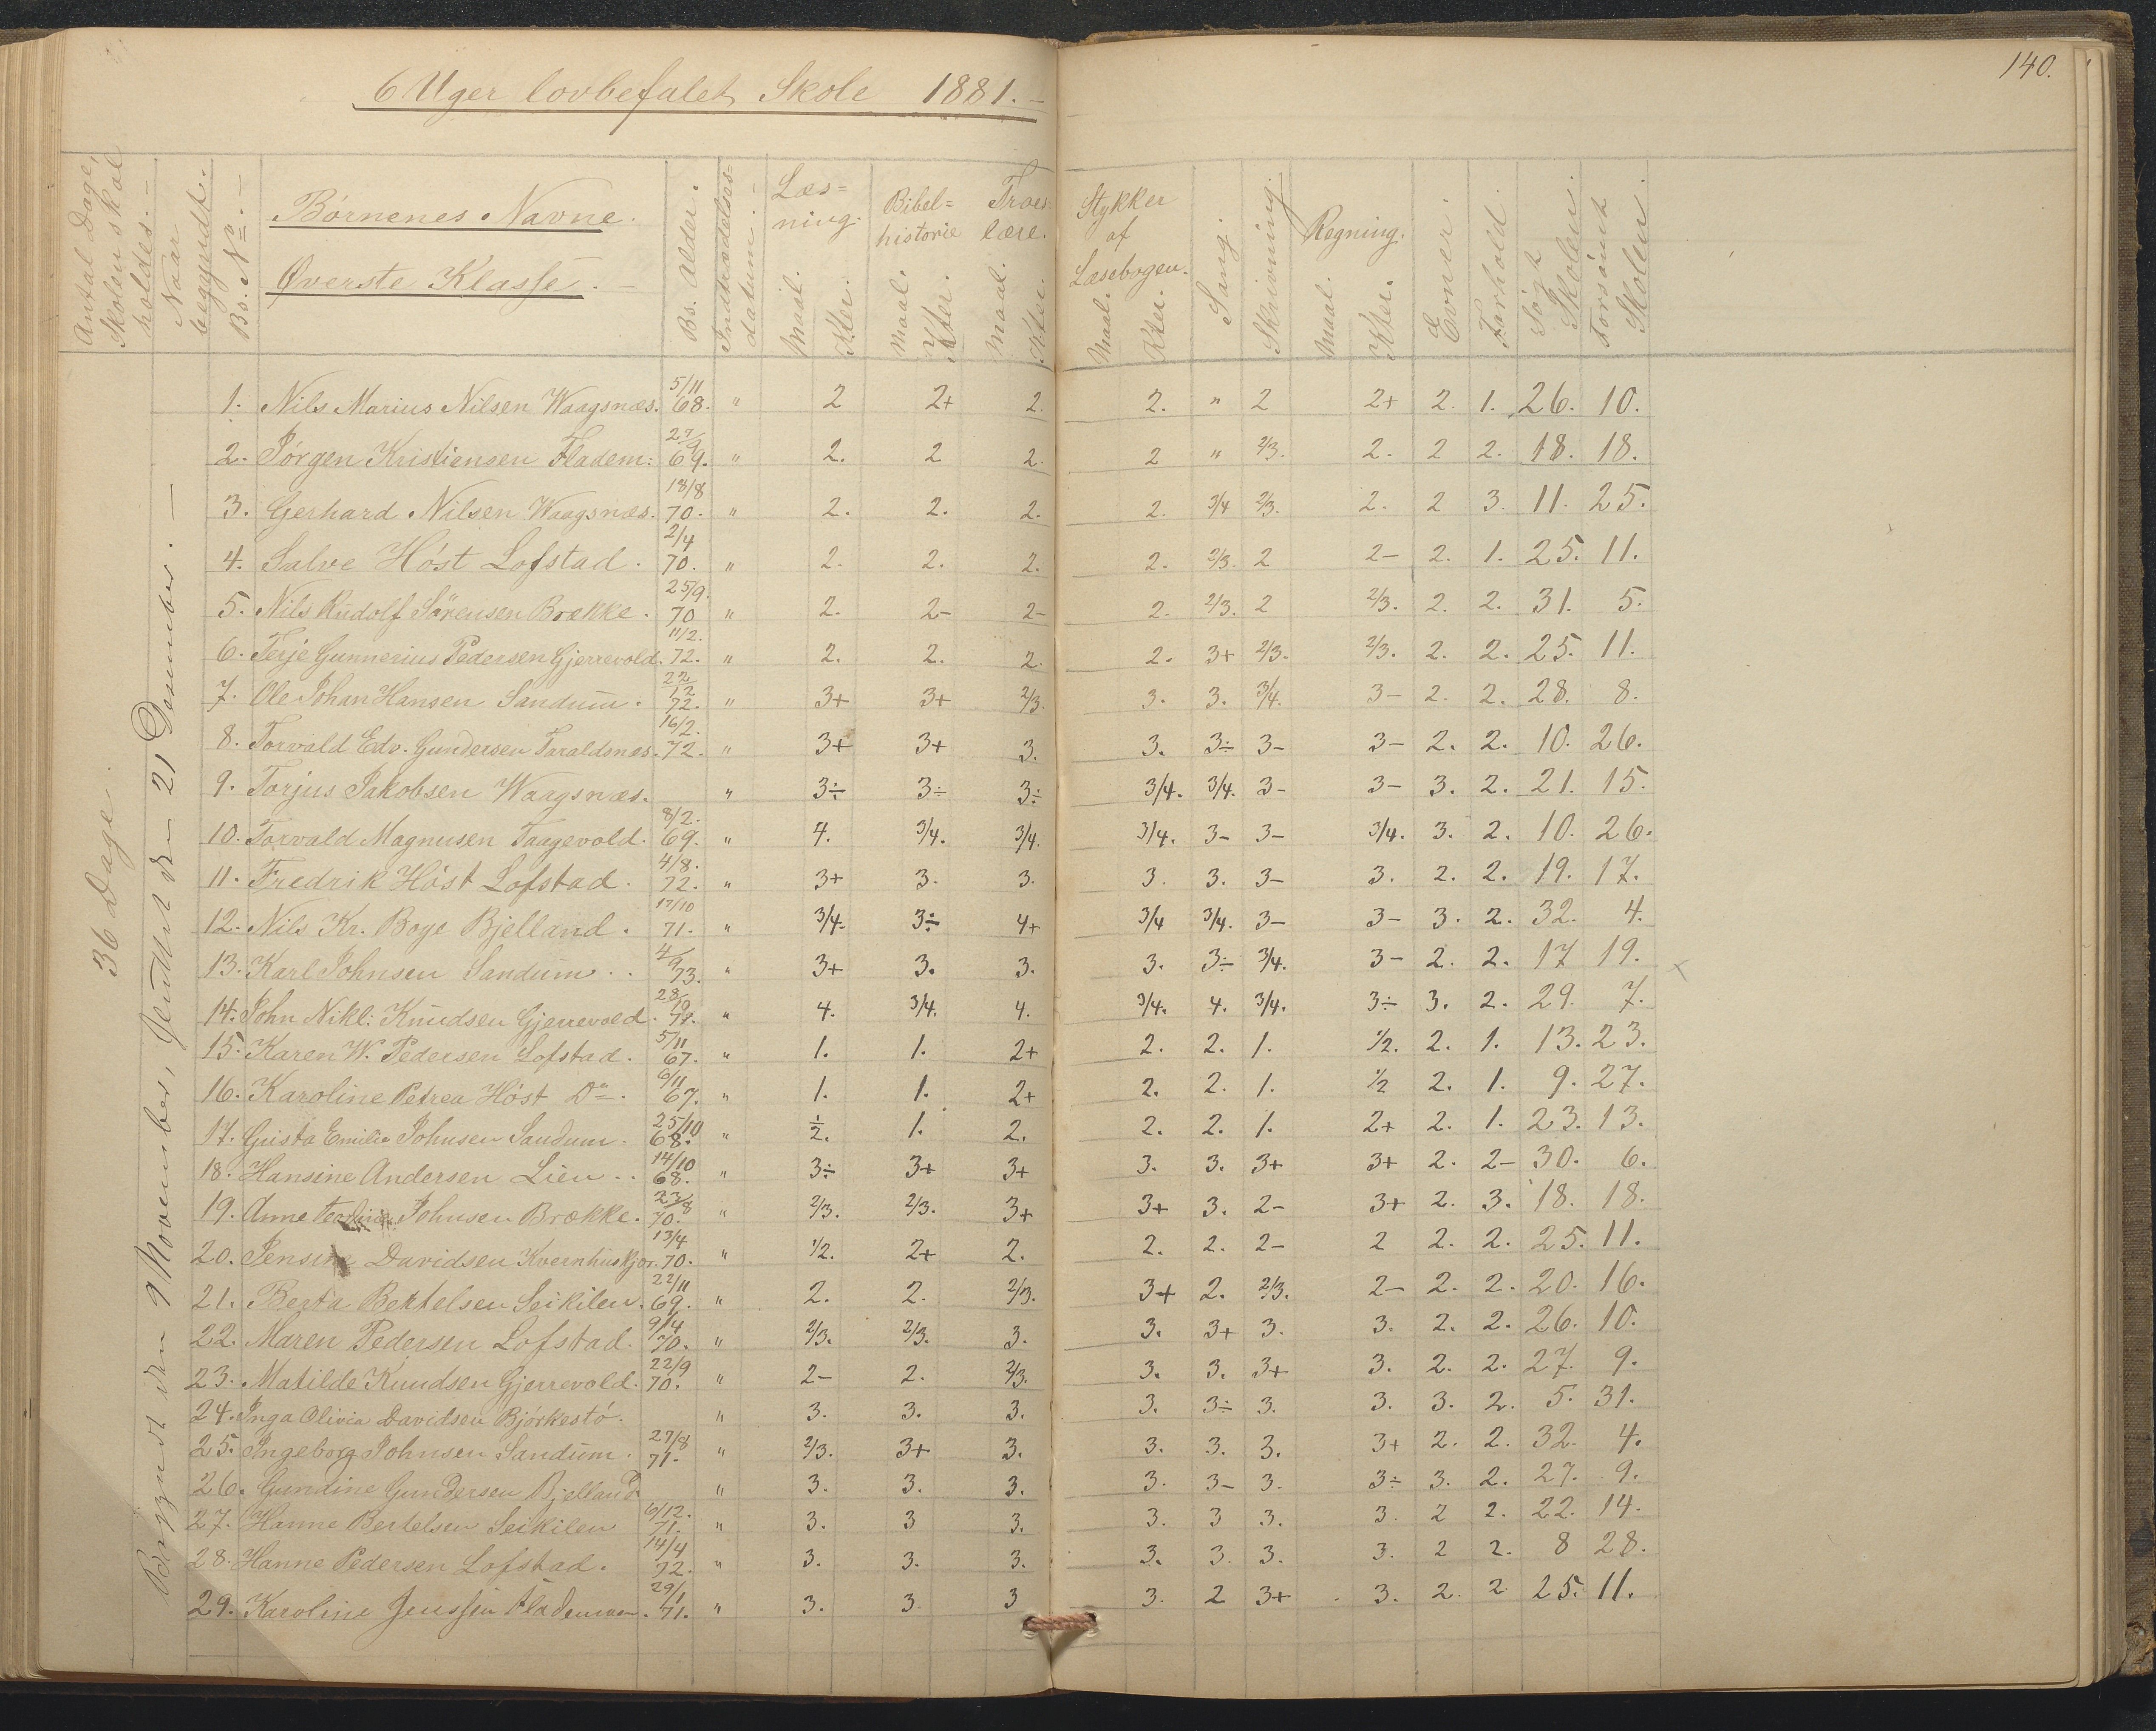 140.
6 Uger lovbefalet Skole 1881.
Antal Dage, Skolen skal holdes.
Naar begyndt.
Bs. No.
Børnenes Navne.
Øverste Klasse.
Bs. Alder.
Indtrædelses=datum.
Læs=ning. Maal. Kter.
Bibel=historie Maal. Kter.
Troes lære. Maal. Kter.
Stykker af Læsebogen. Maal. Kter.
Sang.
Skrivning.
Regning. Maal. Kter.
Evner.
Forhold.
Søgt Skolen.
Forsømt Skolen.
36 Dage.
Begyndt den 9 November, sluttet den 21 Desember.
1. Nils Marius Nilsen Waagsnæs. 5/11 68. " 2 2+ 2. 2. " 2 2+ 2. 1. 26. 10.
2. Jørgen Kristiensen Fladem: 27/9 69. " 2. 2 2. 2 " 2/3. 2. 2 2. 18. 18.
3. Gerhard Nilsen Waagsnæs. 18/8 70. " 2. 2. 2. 2. 3/4 2/3. 2. 2 3. 11. 25.
4. Salve Høst Lofstad. 2/4 70. " 2. 2. 2. 2. 2/3. 2 2- 2. 1. 25. 11.
5. Nils Rudolf Sörensen Brække. 25/9. 70 " 2. 2- 2- 2. 2/3. 2 2/3. 2. 2. 31. 5.
6. Terje Gunnerius Pedersen Gjerrevold. 11/2. 72. " 2. 2. 2. 2. 3+ 2/3. 2/3. 2. 2. 25. 11.
7. Ole Johan Hansen Sandum. 22/12 72. " 3+ 3+ 2/3. 3. 3. 3/4. 3- 2. 2. 28. 8.
8. Torvald Edv. Gundersen Taraldsnæs. 16/2. 72. " 3+ 3+ 3. 3. 3÷ 3- 3- 2. 2. 10. 26.
9. Torjus Jakobsen Waagsnæs. " 3÷ 3÷ 3÷ 3/4. 3/4. 3- 3- 3. 2. 21. 15.
10. Torvald Magnusen Taagevold. 8/2. 69. " 4. 3/4. 3/4. 3/4. 3- 3- 3/4. 3. 2. 10. 26.
11. Fredrik Høst Lofstad. 4/8. 72. " 3+ 3. 3. 3. 3. 3- 3. 2. 2. 19. 17.
12. Nils Kr. Boye Bjelland. 17/10 71. " 3/4. 3÷ 4+ 3/4 3/4. 3- 3- 3. 2. 32. 4.
13. Karl Johnsen Sandum.. 4/9 73. " 3+ 3. 3. 3. 3÷ 3/4. 3- 2. 2. 17 19.
14. John Nikl: Knudsen Gjerrevold. 28/10 71. " 4. 3/4. 4. 3/4. 4. 3/4. 3÷ 3. 2. 29. 7.
15. Karen W. Pedersen Lofstad. 5/11 67. " 1. 1. 2+ 2. 2. 1. 1/2. 2. 1. 13. 23.
16. Karoline Petrea Høst Do. 6/11 67. " 1. 1. 2+ 2. 2. 1. 1/2 2. 1. 9. 27.
17. Gusta Emilie Johnsen Sandum. 25/10 68. " 1/2. 1. 2. 2. 2. 1. 2+ 2. 1. 23. 13.
18. Hansine Andersen Lien.. 14/10 68. " 3÷ 3+ 3+ 3. 3. 3+ 3+ 2. 2- 30. 6.
19. Anne Johnsen Brække. 23/8 70. " 2/3. 2/3. 3+ 3+ 3. 2- 3+ 2. 3. 18. 18.
20. Jensine Davidsen Kvernhuskjær. 13/4 70. " 1/2. 2+ 2. 2. 2. 2- 2 2. 2. 25. 11.
21. Berta Bertelsen Seikilen. 22/11 69. " 2. 2. 2/3. 3+ 2. 2/3. 2- 2. 2. 20. 16.
22. Maren Pedersen Lofstad. 9/4 70. " 2/3. 2/3. 3. 3. 3+ 3. 3. 2. 2. 26. 10.
23. Matilde Knudsen Gjerrevold. 22/9 70. " 2- 2. 2/3. 3. 3. 3+ 3. 2. 2. 27. 9.
24. Inga Olivia Davidsen Bjørkestö. " 3. 3. 3. 3. 3÷ 3. 3. 3. 2. 5. 31.
25. Ingeborg Johnsen Sandum. 27/8 71. " 2/3. 3+ 3. 3. 3. 3. 3+ 2. 2. 32. 4.
26. Gundine Gundersen Bjelland. " 3. 3. 3. 3. 3- 3. 3÷ 3. 2. 27. 9.
27. Hanne Bertelsen Seikilen 6/12. 71. " 3. 3 3. 3. 3 3. 3. 2 2. 22. 14.
28. Hanne Pedersen Lofstad. 14/4 72. " 3. 3. 3. 3. 3. 3. 3. 2 2. 8 28.
29. Karoline Jenssen Flademoen. 29/1 71. " 3. 3. 3 3. 2 3+ 3. 2. 2 25. 11.